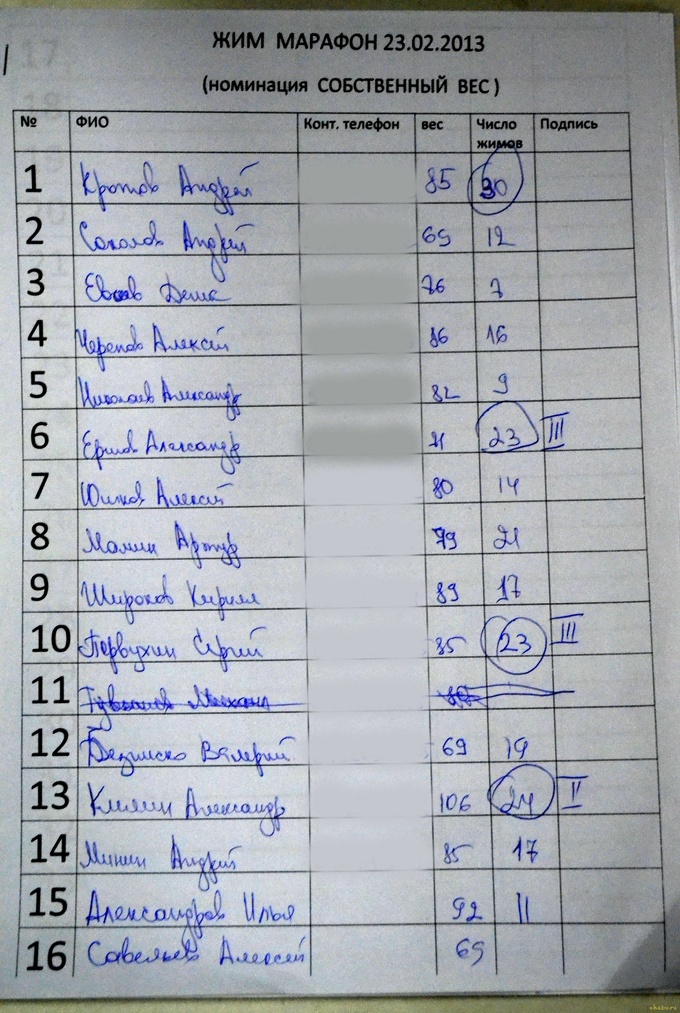 ЖИМ МАРАФОН 23.02.2013
(номинация СОБСТВЕННЫЙ ВЕС)
№ ФИО Конт. телефон вес Число жимов Подпись
1 Кротов Андрей 85 30
2 Соколов Андрей 69 12
3 Денис 76 7
4 Черепов Алексей 86 16
5 Николаев Александр 82 9
6 Ершов Александр 23 III
7 Алексей 80 14
8 Малин Артур 79 21
9 Широков Кирилл 89 17
10 Первухин Сергей 85 23 III
11 Михаил
12 Валерий 69 19
13 Климин Александр 106 24 II
14 Минин Андрей 85 17
15 Александров Илья 92 11
16 Савельев Алексей 69